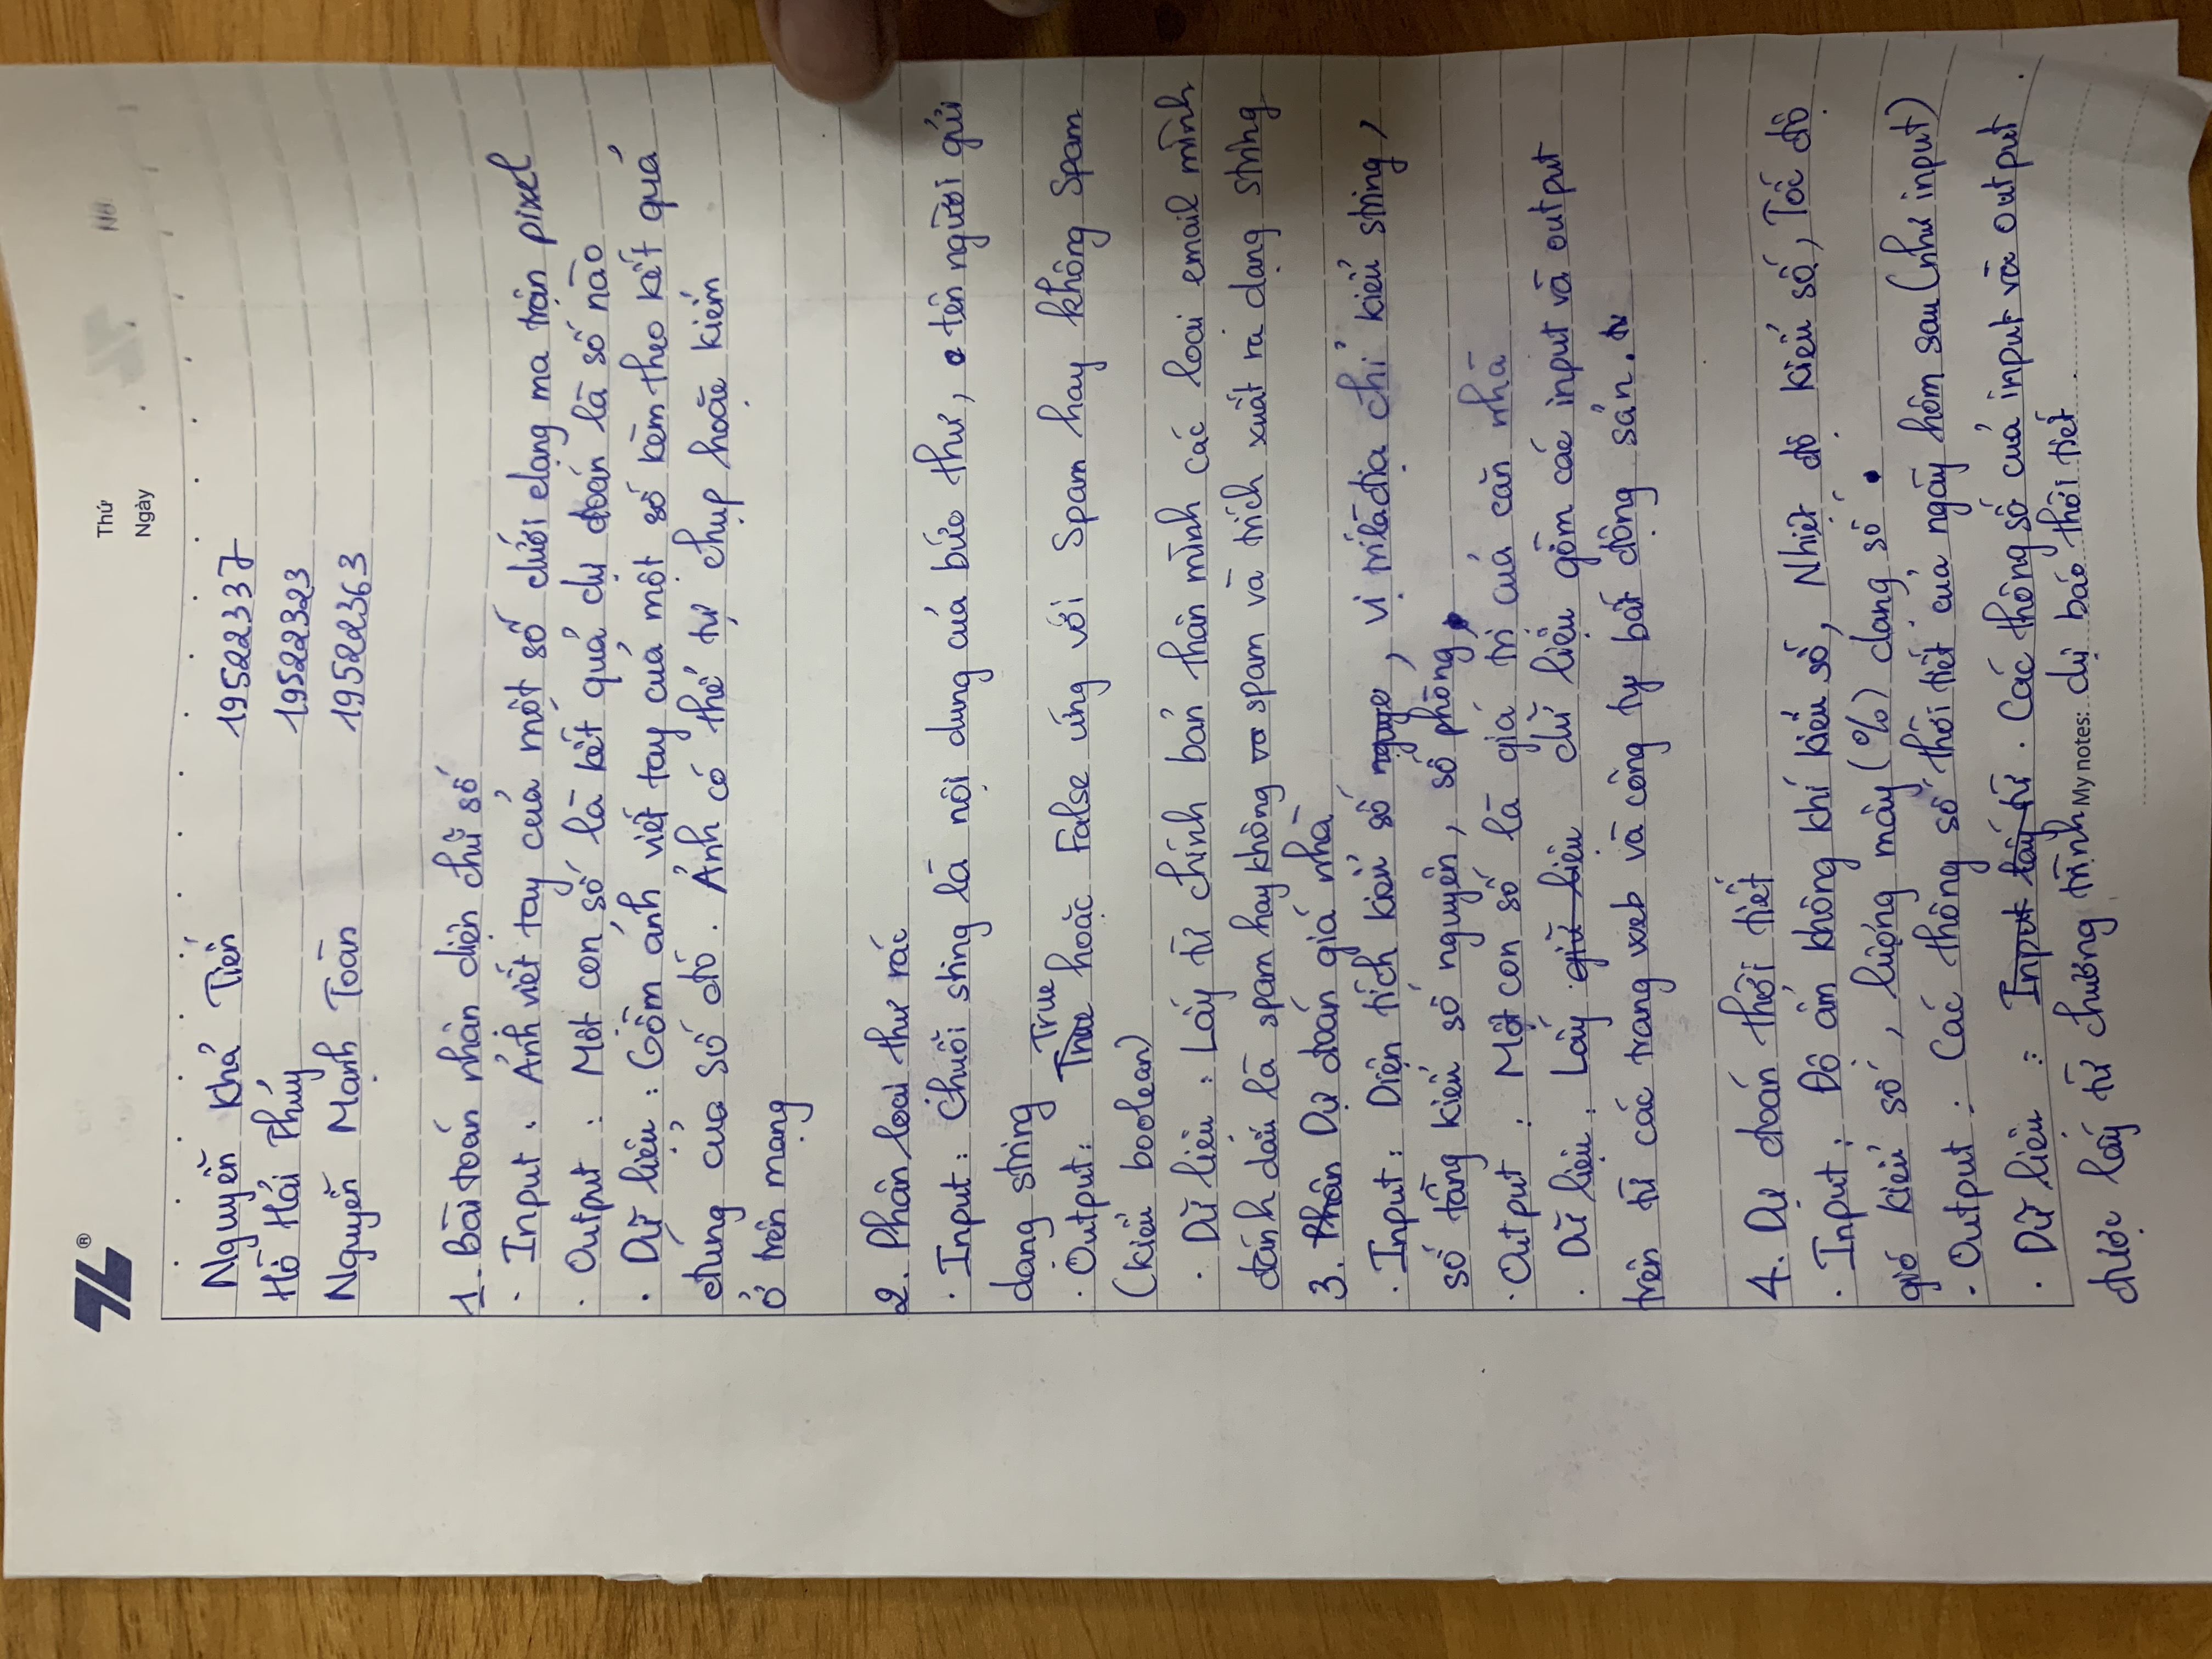 TL®
Thứ
Ngày
Nguyễn Khả Tiến 19522337
Hồ Hải Thúy 19522323
Nguyễn Mạnh Toàn 19522363
1. Bài toán nhận diện chữ số
· Input : Ảnh viết tay của một số dưới dạng ma trận pixel
· Output : Một con số là kết quả dự đoán là số nào
· Dữ liệu : Gồm ảnh viết tay của một số kèm theo kết quả
đúng của số đó. Ảnh có thể tự chụp hoặc kiếm
ở trên mạng
2. Phân loại thư rác
· Input : Chuỗi sting là nội dung của bức thư, tên người gửi
dạng string
True
· Output : hoặc False ứng với Spam hay không Spam
(kiểu boolean)
· Dữ liệu : Lấy từ chính bản thân mình các loại email mình
đánh dấu là spam hay không spam và trích xuất ra dạng string
3. Phân Dự đoán giá nhà
· Input : Diện tích kiểu số nguye, vị trí là địa chỉ kiểu string,
số tầng kiểu số nguyên, số phòng
· Output : Một con số là giá trị của căn nhà
· Dữ liệu : Lấy giữ liệu dữ liệu gồm các input và output
trên từ các trang web và công ty bất động sản.
4. Dự đoán thời tiết
· Input : Độ ẩm không khí kiểu số, Nhiệt độ kiểu số, Tốc độ
gió kiểu số, lượng mây (%) dạng số.
- Output : Các thông số thời tiết của ngày hôm sau (như input)
· Dữ liệu : Input lấy từ. Các thông số của input và output
được lấy từ chương trình My notes: dự báo thời tiết.